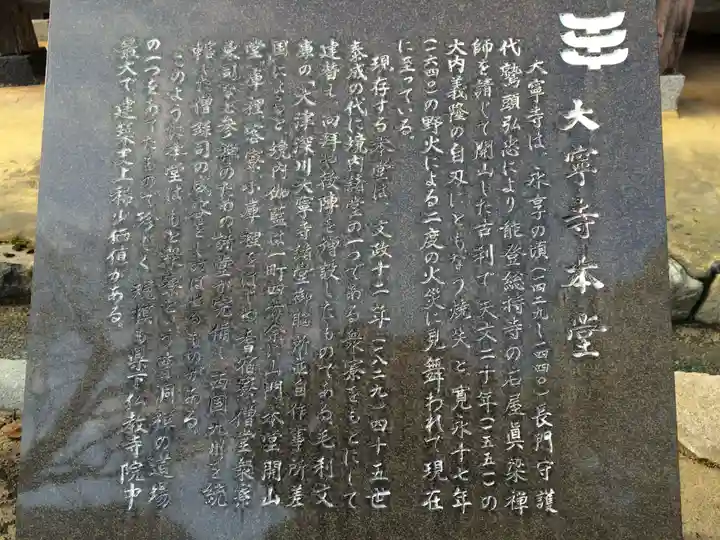 大寧寺本堂
大寧寺は、永享の頃(一四二九〜一四四〇)長門守護
代鷲頭弘忠により能登総持寺の石屋眞梁禅
師を請じて開山した古刹で、天文二十年(一五五一)の
大内義隆の自刃にともなう焼失と寛永十七年
(一六四〇)の野火による二度の火災に見舞われて現在
に至っている。
現存する本堂は、文政十二年(一八二九)四十五世
泰成の代に境内諸堂の一つである衆寮をもとにして
建替え、向拝北投陣を増設したものである。毛利文
庫の「大津深川大寧寺諸堂御脳所並自作事所差
図によると、境内伽藍は一町四方余に山門、本堂、開山
堂、庫裡、客寮、小庫裡をはじめ、看宿寮、僧堂、衆寮
東司など参禅のための諸堂が完備し、西国九州を統
轄した僧録司の威容を
このような本堂は、もと衆寮という
の一つをあてたもので珍しく、規模も県下仏教寺院中
最大で建築史上稀少価値がある。